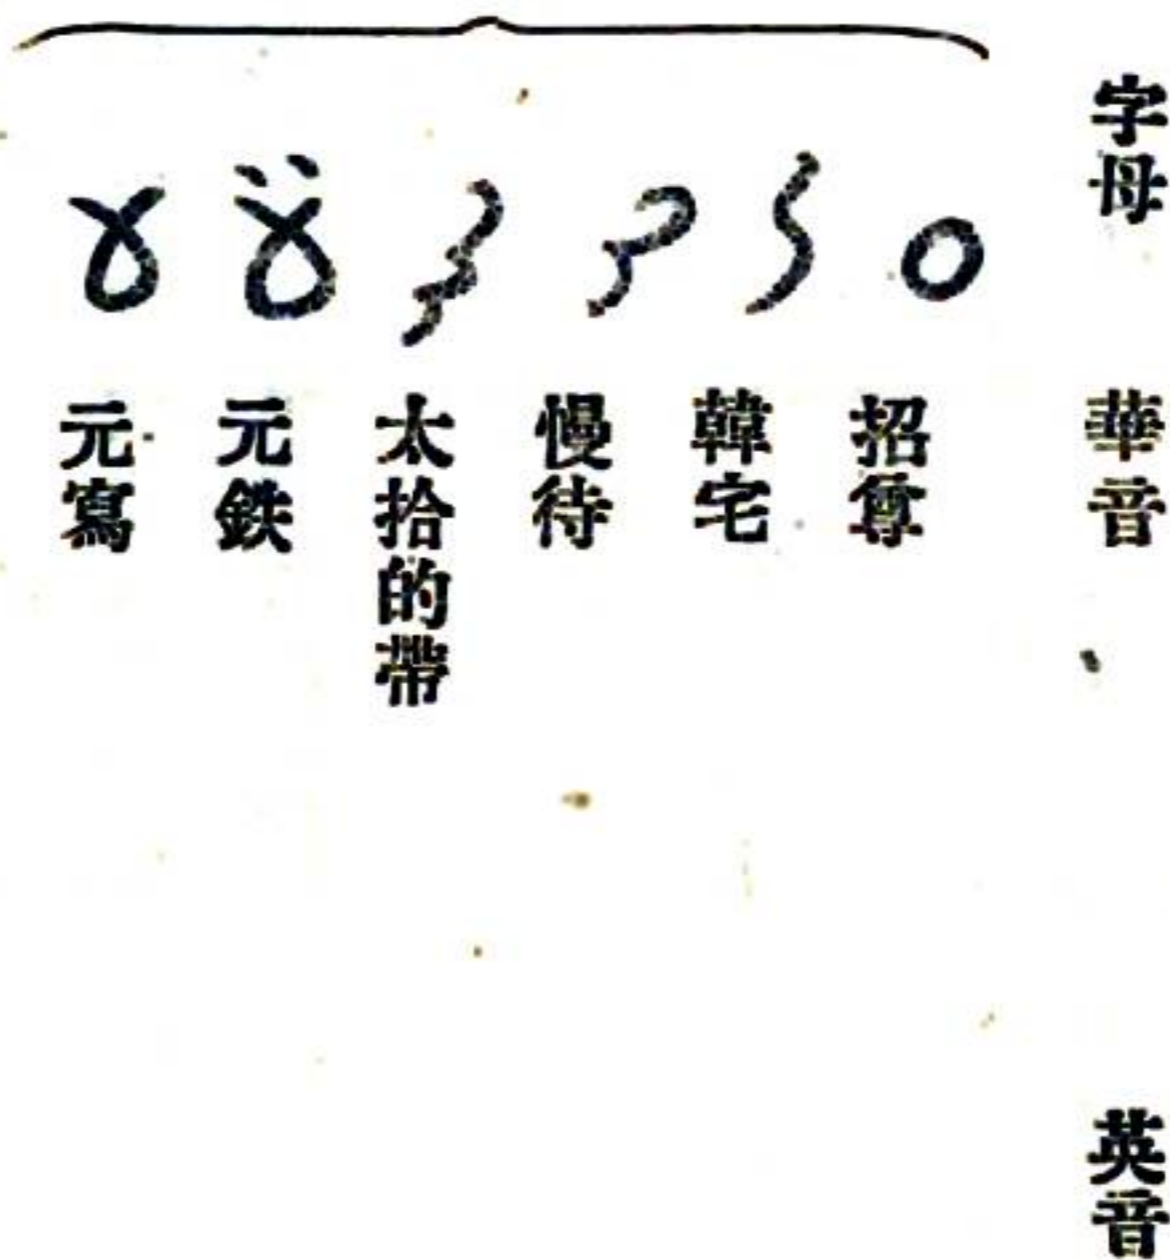 字母 華音 英音
招尊
韓宅
慢待
太拾的帶
元鉄
元寫